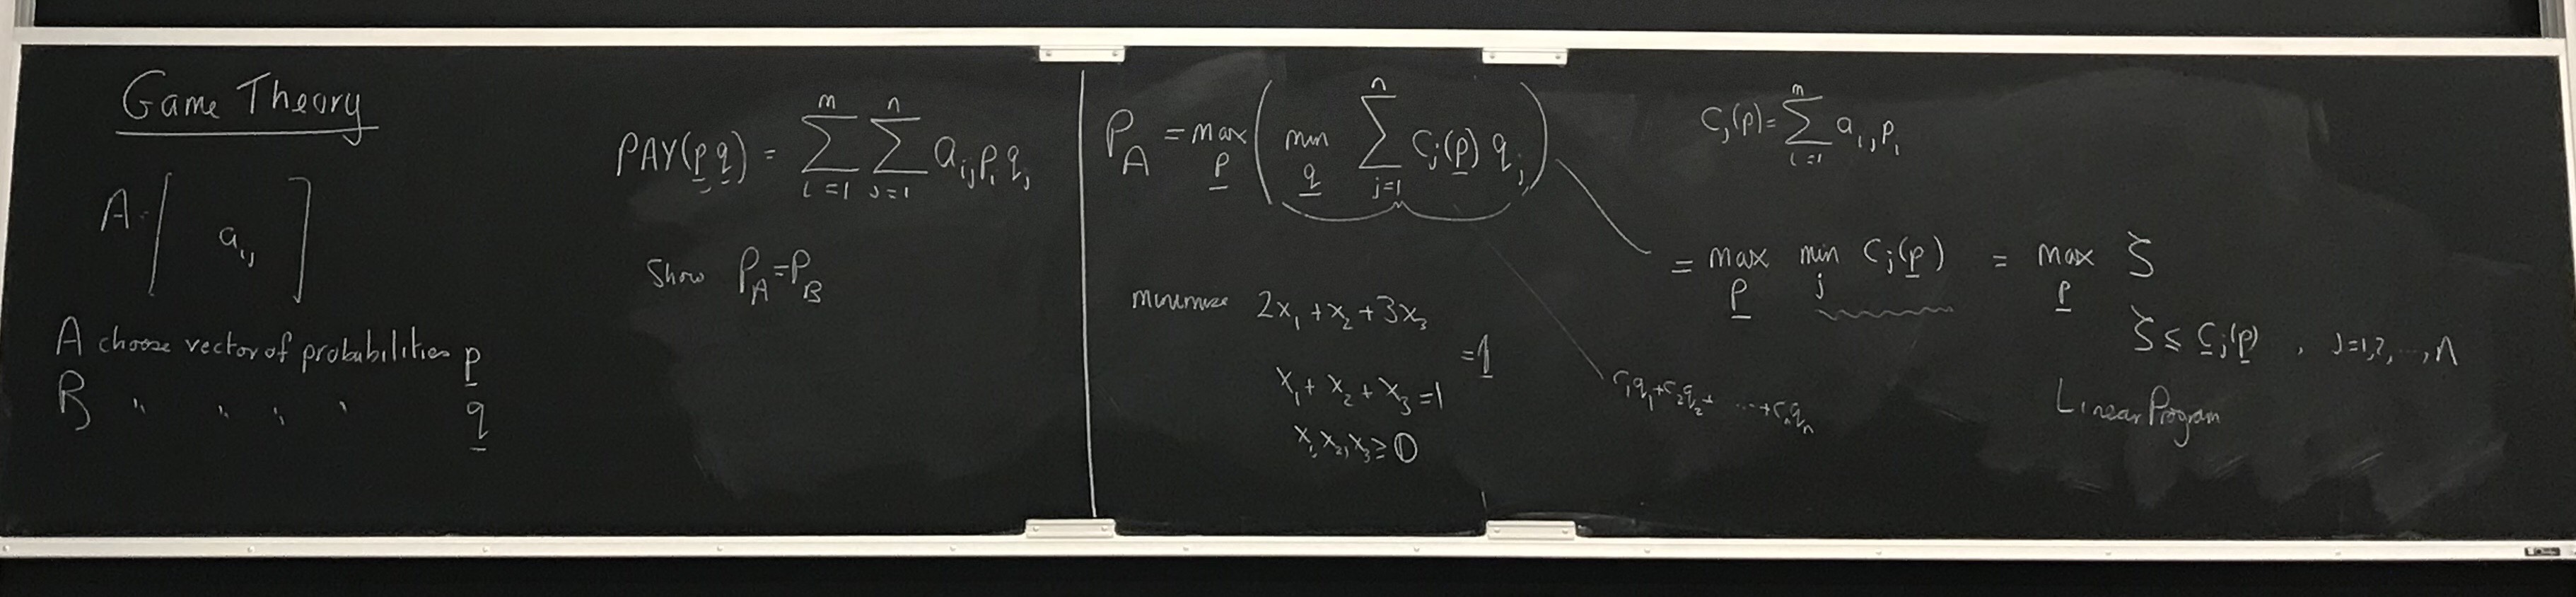 Game Theory
A = [ a_ij ]
A choose vector of probabilities p
B " " " " q
PAY(p, q) = ∑_{i=1}^{m} ∑_{j=1}^{n} a_ij p_i q_j
Show P_A = P_B
P_A = max_p ( min_q ∑_{j=1}^{n} C_j(p) q_j )
minimize 2x_1 + x_2 + 3x_3
= 1
x_1 + x_2 + x_3 = 1
x_1, x_2, x_3 ≥ 0
c_1q_1 + c_2q_2 + ... + c_nq_n
C_j(p) = ∑_{i=1}^{m} a_ij p_i
= max_p min_j C_j(p) = max_p ζ
ζ ≤ C_j(p) , j=1,2,...,n
Linear Program